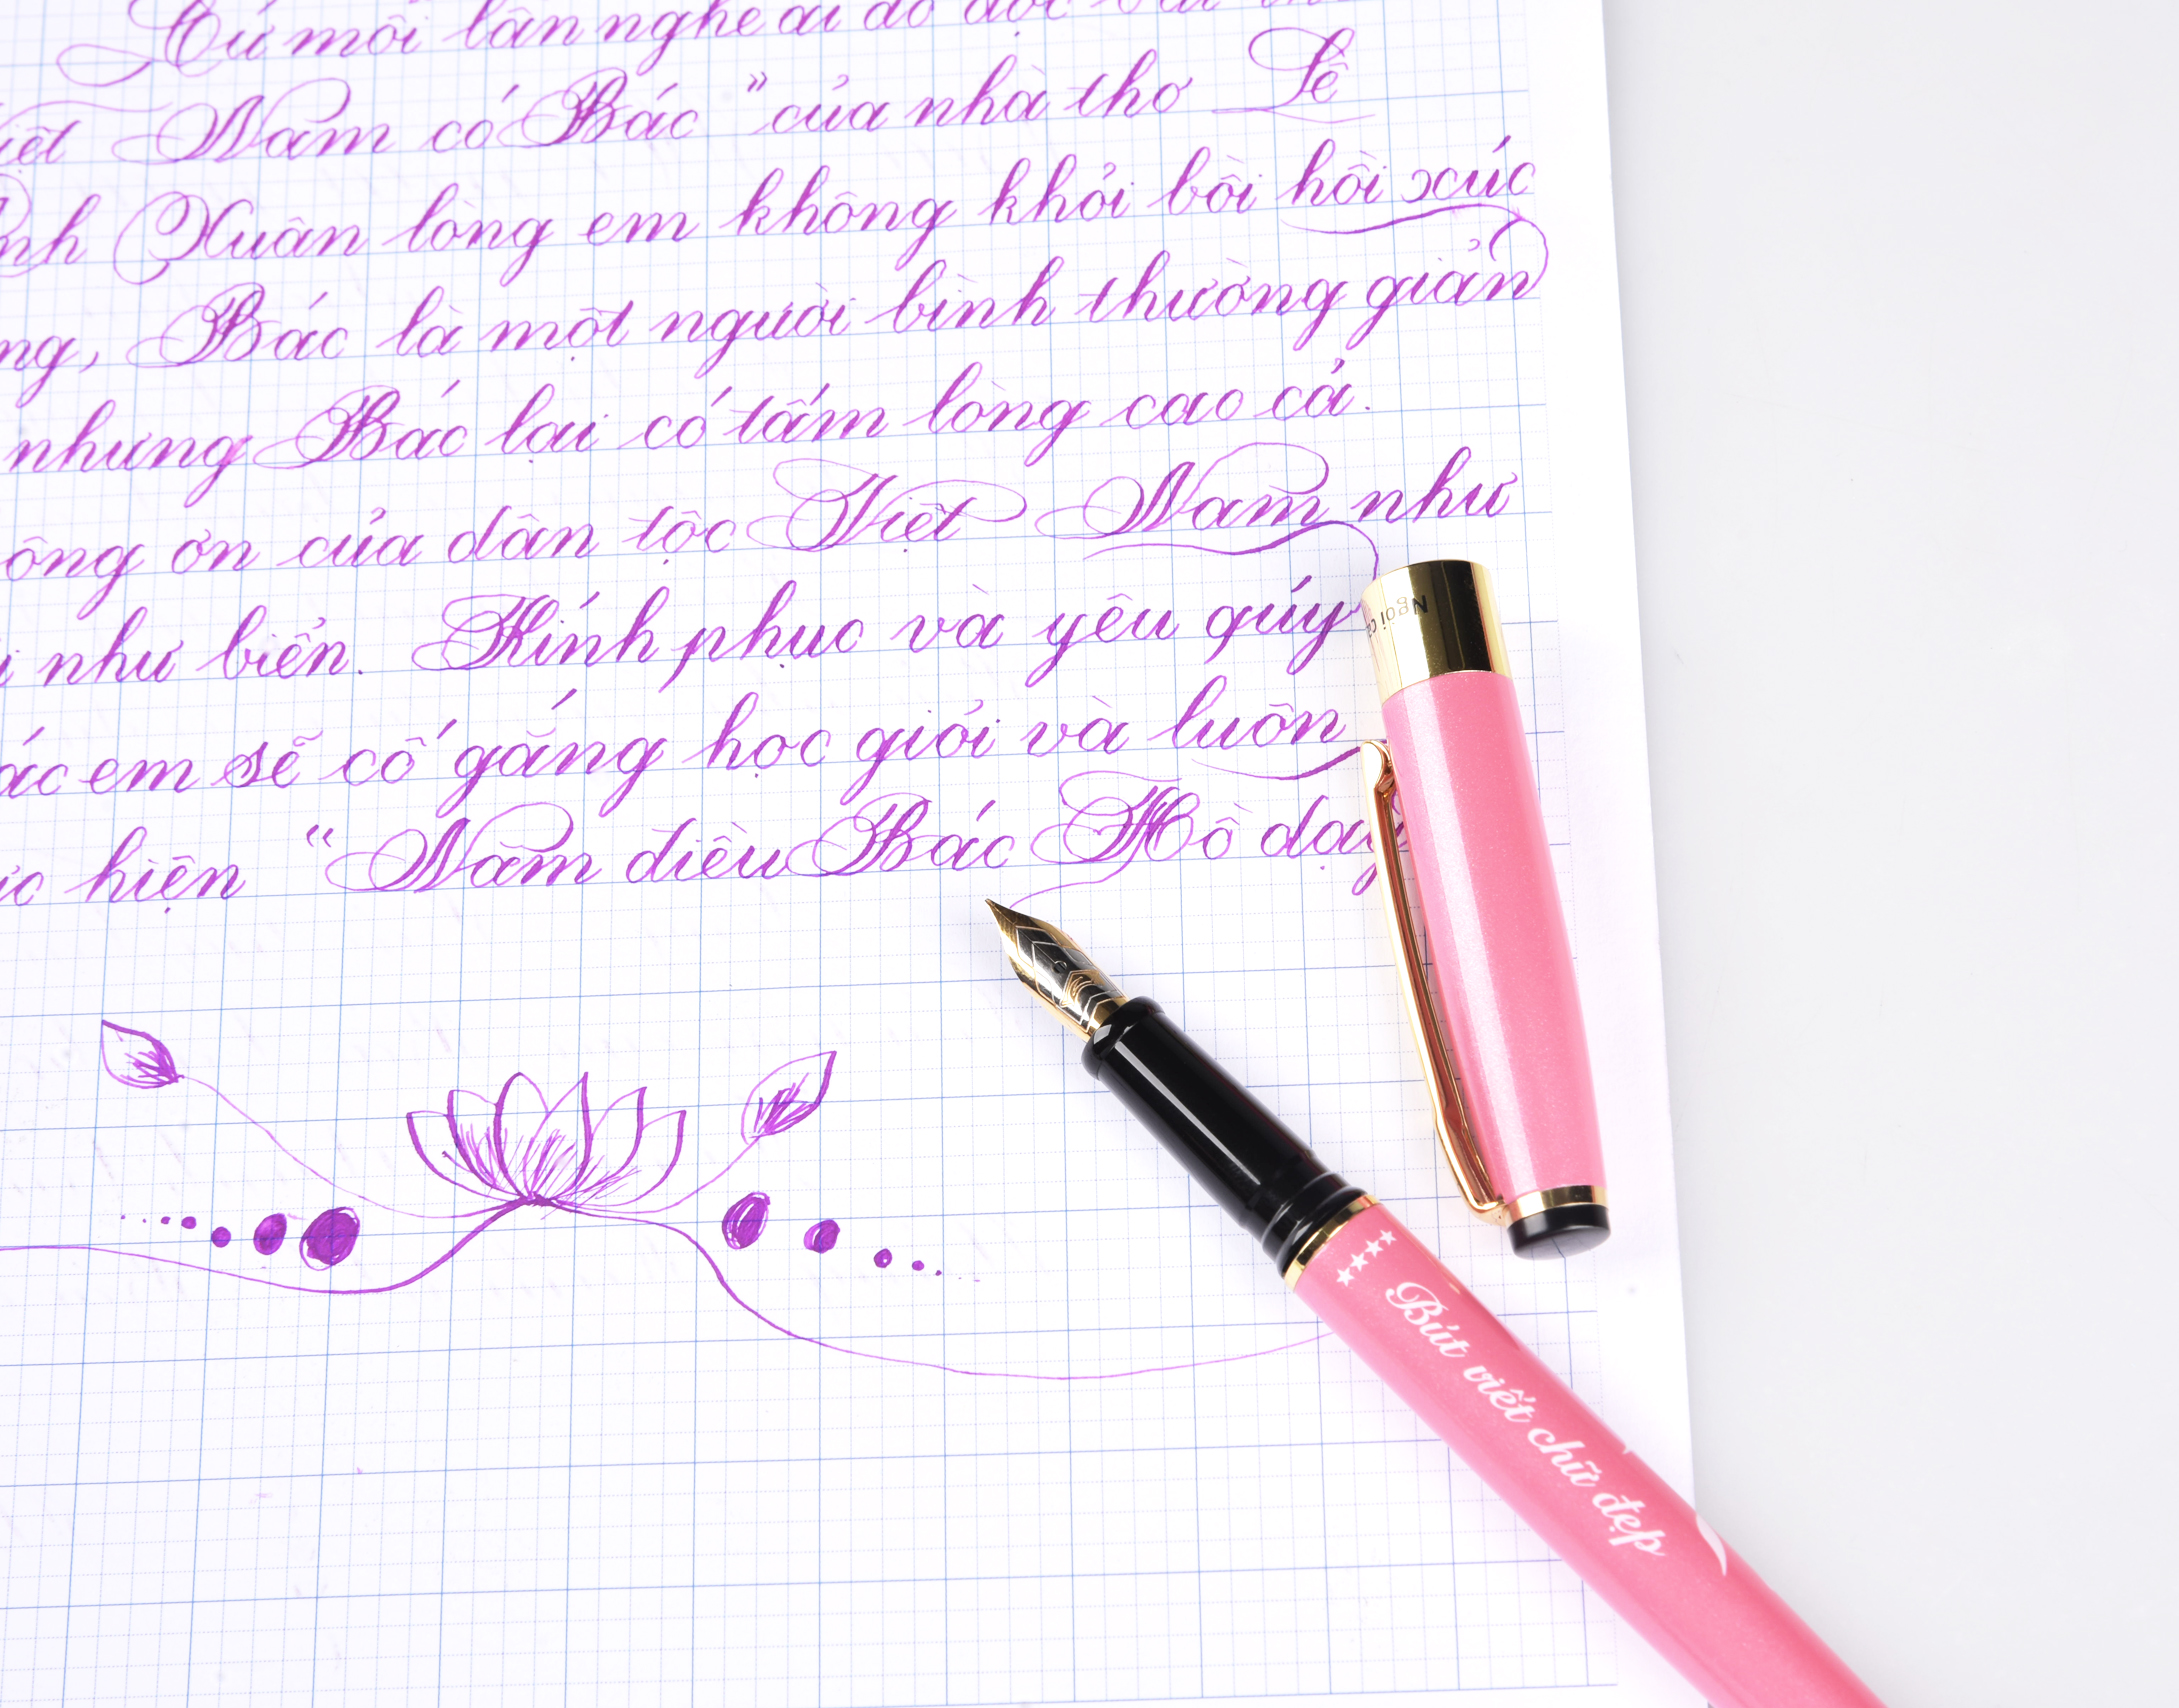 Cứ mỗi lần nghe ai đó đọc bài
Nam có Bác" của nhà thơ Lê
Xuân lòng em không khỏi bồi hồi xúc
Bác là một người bình thường giản
nhưng Bác lại có tấm lòng cao cả.
ơn của dân tộc Việt Nam như
như biển. Kính phục và yêu quý
em sẽ cố gắng học giỏi và luôn
hiện "Năm điều Bác Hồ dạy
Ngòi
Bút viết chữ đẹp